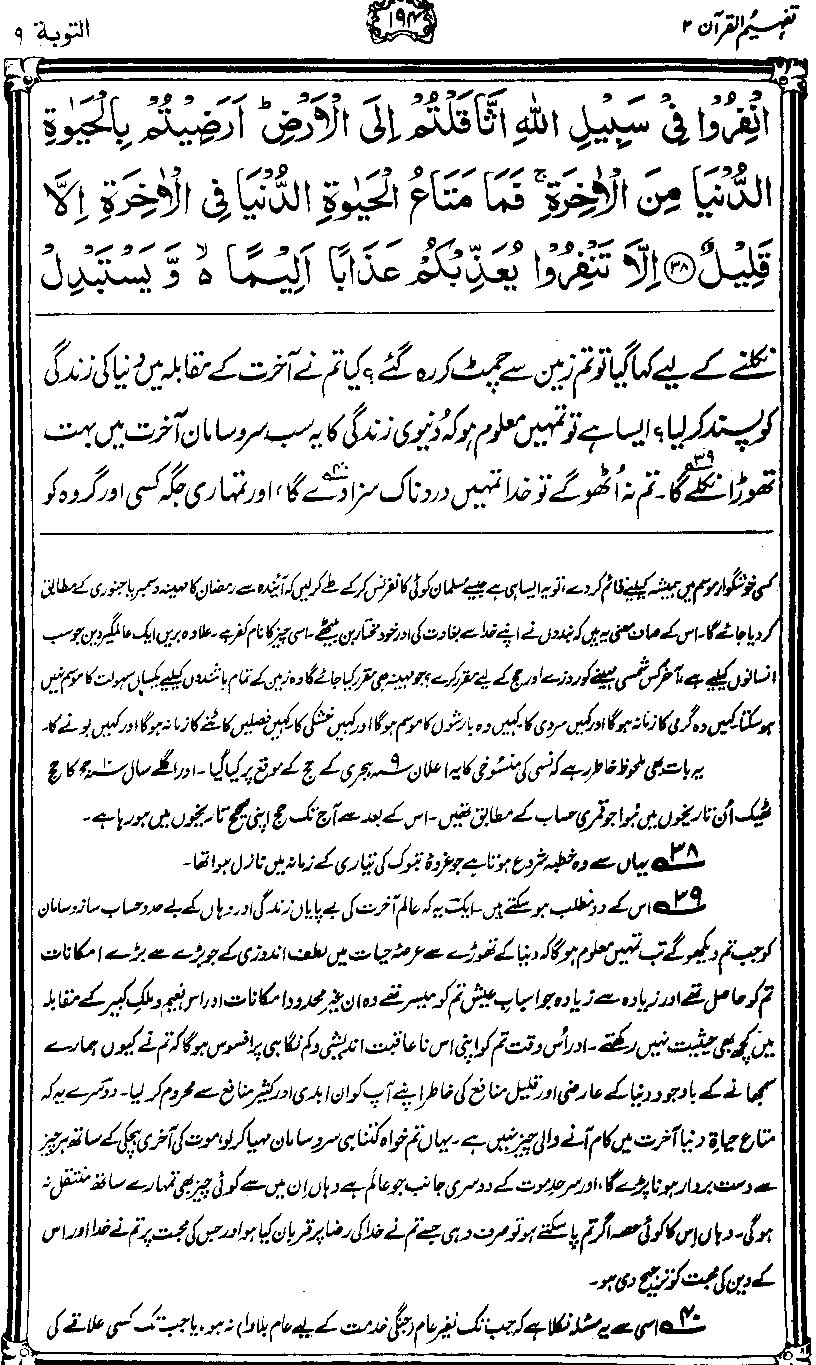 تفہیم القرآن ۲
۱۹۴
التوبة ۹
انْفِرُوْا فِیْ سَبِیْلِ اللّٰهِ اثَّاقَلْتُمْ اِلَی الْاَرْضِ ؕ اَرَضِیْتُمْ بِالْحَیٰوةِ
الدُّنْیَا مِنَ الْاٰخِرَةِ ۚ فَمَا مَتَاعُ الْحَیٰوةِ الدُّنْیَا فِی الْاٰخِرَةِ اِلَّا
قَلِیْلٌ ﴿۳۸﴾ اِلَّا تَنْفِرُوْا یُعَذِّبْكُمْ عَذَابًا اَلِیْمًا ۙ۬ وَّ یَسْتَبْدِلْ
نکلنے کے لیے کہا گیا تو تم زمین سے چمٹ کر رہ گئے؟ کیا تم نے آخرت کے مقابلہ میں دنیا کی زندگی
کو پسند کر لیا؟ ایسا ہے تو تمہیں معلوم ہو کہ دُنیوی زندگی کا یہ سب سروسامان آخرت میں بہت
تھوڑا نکلے گا۳۹۔ تم نہ اُٹھو گے تو خدا تمہیں دردناک سزا دے گا۴۰، اور تمہاری جگہ کسی اور گروہ کو
کسی خوشگوار موسم میں ہمیشہ کیلیے قائم کر دے، تو یہ ایسا ہی ہے جیسے مسلمان کوئی کانفرنس کر کے طے کر لیں کہ آئندہ سے رمضان کا مہینہ دسمبر یا جنوری کے مطابق
کر دیا جائے گا۔ اس کے صاف معنی یہ ہیں کہ بندوں نے اپنے خدا سے بغاوت کی اور خود مختار بن بیٹھے۔ اسی چیز کا نام کفر ہے۔ علاوہ بریں ایک عالمگیر دین جو سب
انسانوں کیلیے ہے، آخر کس شمسی مہینے کو روزے اور حج کے لیے مقرر کرے؟ جو مہینہ بھی مقرر کیا جائے گا وہ زمین کے تمام باشندوں کیلیے یکساں سہولت کا موسم نہیں
ہو سکتا۔ کہیں وہ گرمی کا زمانہ ہوگا اور کہیں سردی کا۔ کہیں وہ بارشوں کا موسم ہوگا اور کہیں خشکی کا۔ کہیں فصلیں کاٹنے کا زمانہ ہوگا اور کہیں بونے کا۔
یہ بات بھی ملحوظ خاطر رہے کہ نسی کی منسوخی کا یہ اعلان ۹ ہجری کے حج کے موقع پر کیا گیا۔ اور اگلے سال ۱۰ھ کا حج
ٹھیک اُن تاریخوں میں ہوا جو قمری حساب کے مطابق تھیں۔ اس کے بعد سے آج تک حج اپنی صحیح تاریخوں میں ہو رہا ہے۔
۳۸ یہاں سے وہ خطبہ شروع ہوتا ہے جو غزوۂ تبوک کی تیاری کے زمانہ میں نازل ہوا تھا۔
۳۹ اس کے دو مطلب ہو سکتے ہیں۔ ایک یہ کہ عالم آخرت کی بے پایاں زندگی اور وہاں کے بے حد و حساب سازوسامان
کو جب تم دیکھو گے تب تمہیں معلوم ہوگا کہ دنیا کے تھوڑے سے عرصۂ حیات میں لطف اندوزی کے جو بڑے سے بڑے امکانات
تم کو حاصل تھے اور زیادہ سے زیادہ جو اسبابِ عیش تم کو میسر تھے وہ ان غیر محدود امکانات اور اس نعیم و ملکِ کبیر کے مقابلہ
میں کچھ بھی حیثیت نہیں رکھتے۔ اور اُس وقت تم کو اپنی اس ناعاقبت اندیشی و کم نگاہی پر افسوس ہوگا کہ تم نے کیوں ہمارے
سمجھانے کے باوجود دنیا کے عارضی اور قلیل منافع کی خاطر اپنے آپ کو ان ابدی اور کثیر منافع سے محروم کر لیا۔ دوسرے یہ کہ
متاع حیاۃ دنیا آخرت میں کام آنے والی چیز نہیں ہے۔ یہاں تم خواہ کتنا ہی سروسامان مہیا کر لو، موت کی آخری ہچکی کے ساتھ ہر چیز
سے دست بردار ہونا پڑے گا، اور سرحدِ موت کے دوسری جانب جو عالم ہے وہاں اِن میں سے کوئی چیز بھی تمہارے ساتھ منتقل نہ
ہوگی۔ وہاں اِس کا کوئی حصہ اگر تم پا سکتے ہو تو صرف وہی جسے تم نے خدا کی رضا پر قربان کیا ہو اور جس کی محبت پر تم نے خدا اور اس
کے دین کی محبت کو ترجیح دی ہو۔
۴۰ اسی سے یہ مسئلہ نکلا ہے کہ جب تک نفیر عام (جنگی خدمت کے لیے عام بلاوا) نہ ہو، یا جب تک کسی علاقے کی